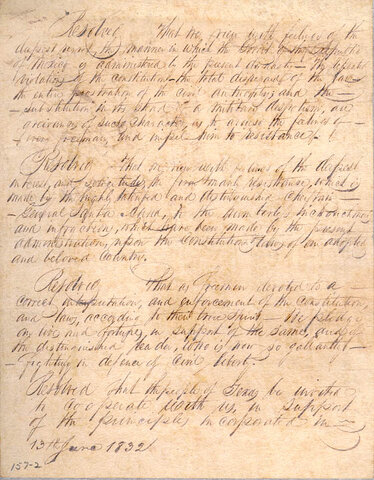 Resolved That we view with feelings of the
deepest the manner in which the Govt of the Republic
of Mexico is administered by the present dynasty – The repeated
violations of the constitution – the total disregard of the law –
the entire prostration of the civil authority, and the –
– substitution in its stead of a military despotism, are
grievances of such character, as to arouse the feelings of
every freeman, and impel him to resistance –
Resolved That we view with feelings of the deepest
interest, and solicitude the firm and manly resistance, which is
made by the highly talented and distinguished Chieftain –
– General Santa Anna, to the numberless
and infractions, which have been made by the present
administration, upon the Constitution & laws of our adopted
and beloved Country.
Resolved That as Freemen devoted to a –
correct interpretation, and enforcement of the Constitution,
and laws, according to their true Spirit – We pledge
our lives and fortunes, in support of the same, and of
the distinguished leader, who is now so gallantly –
– fighting in defence of Civil liberty.
Resolved that the people of Texas be invited
to cooperate with us, in support
of the principles incorporated in –
13th June 1832
157-2